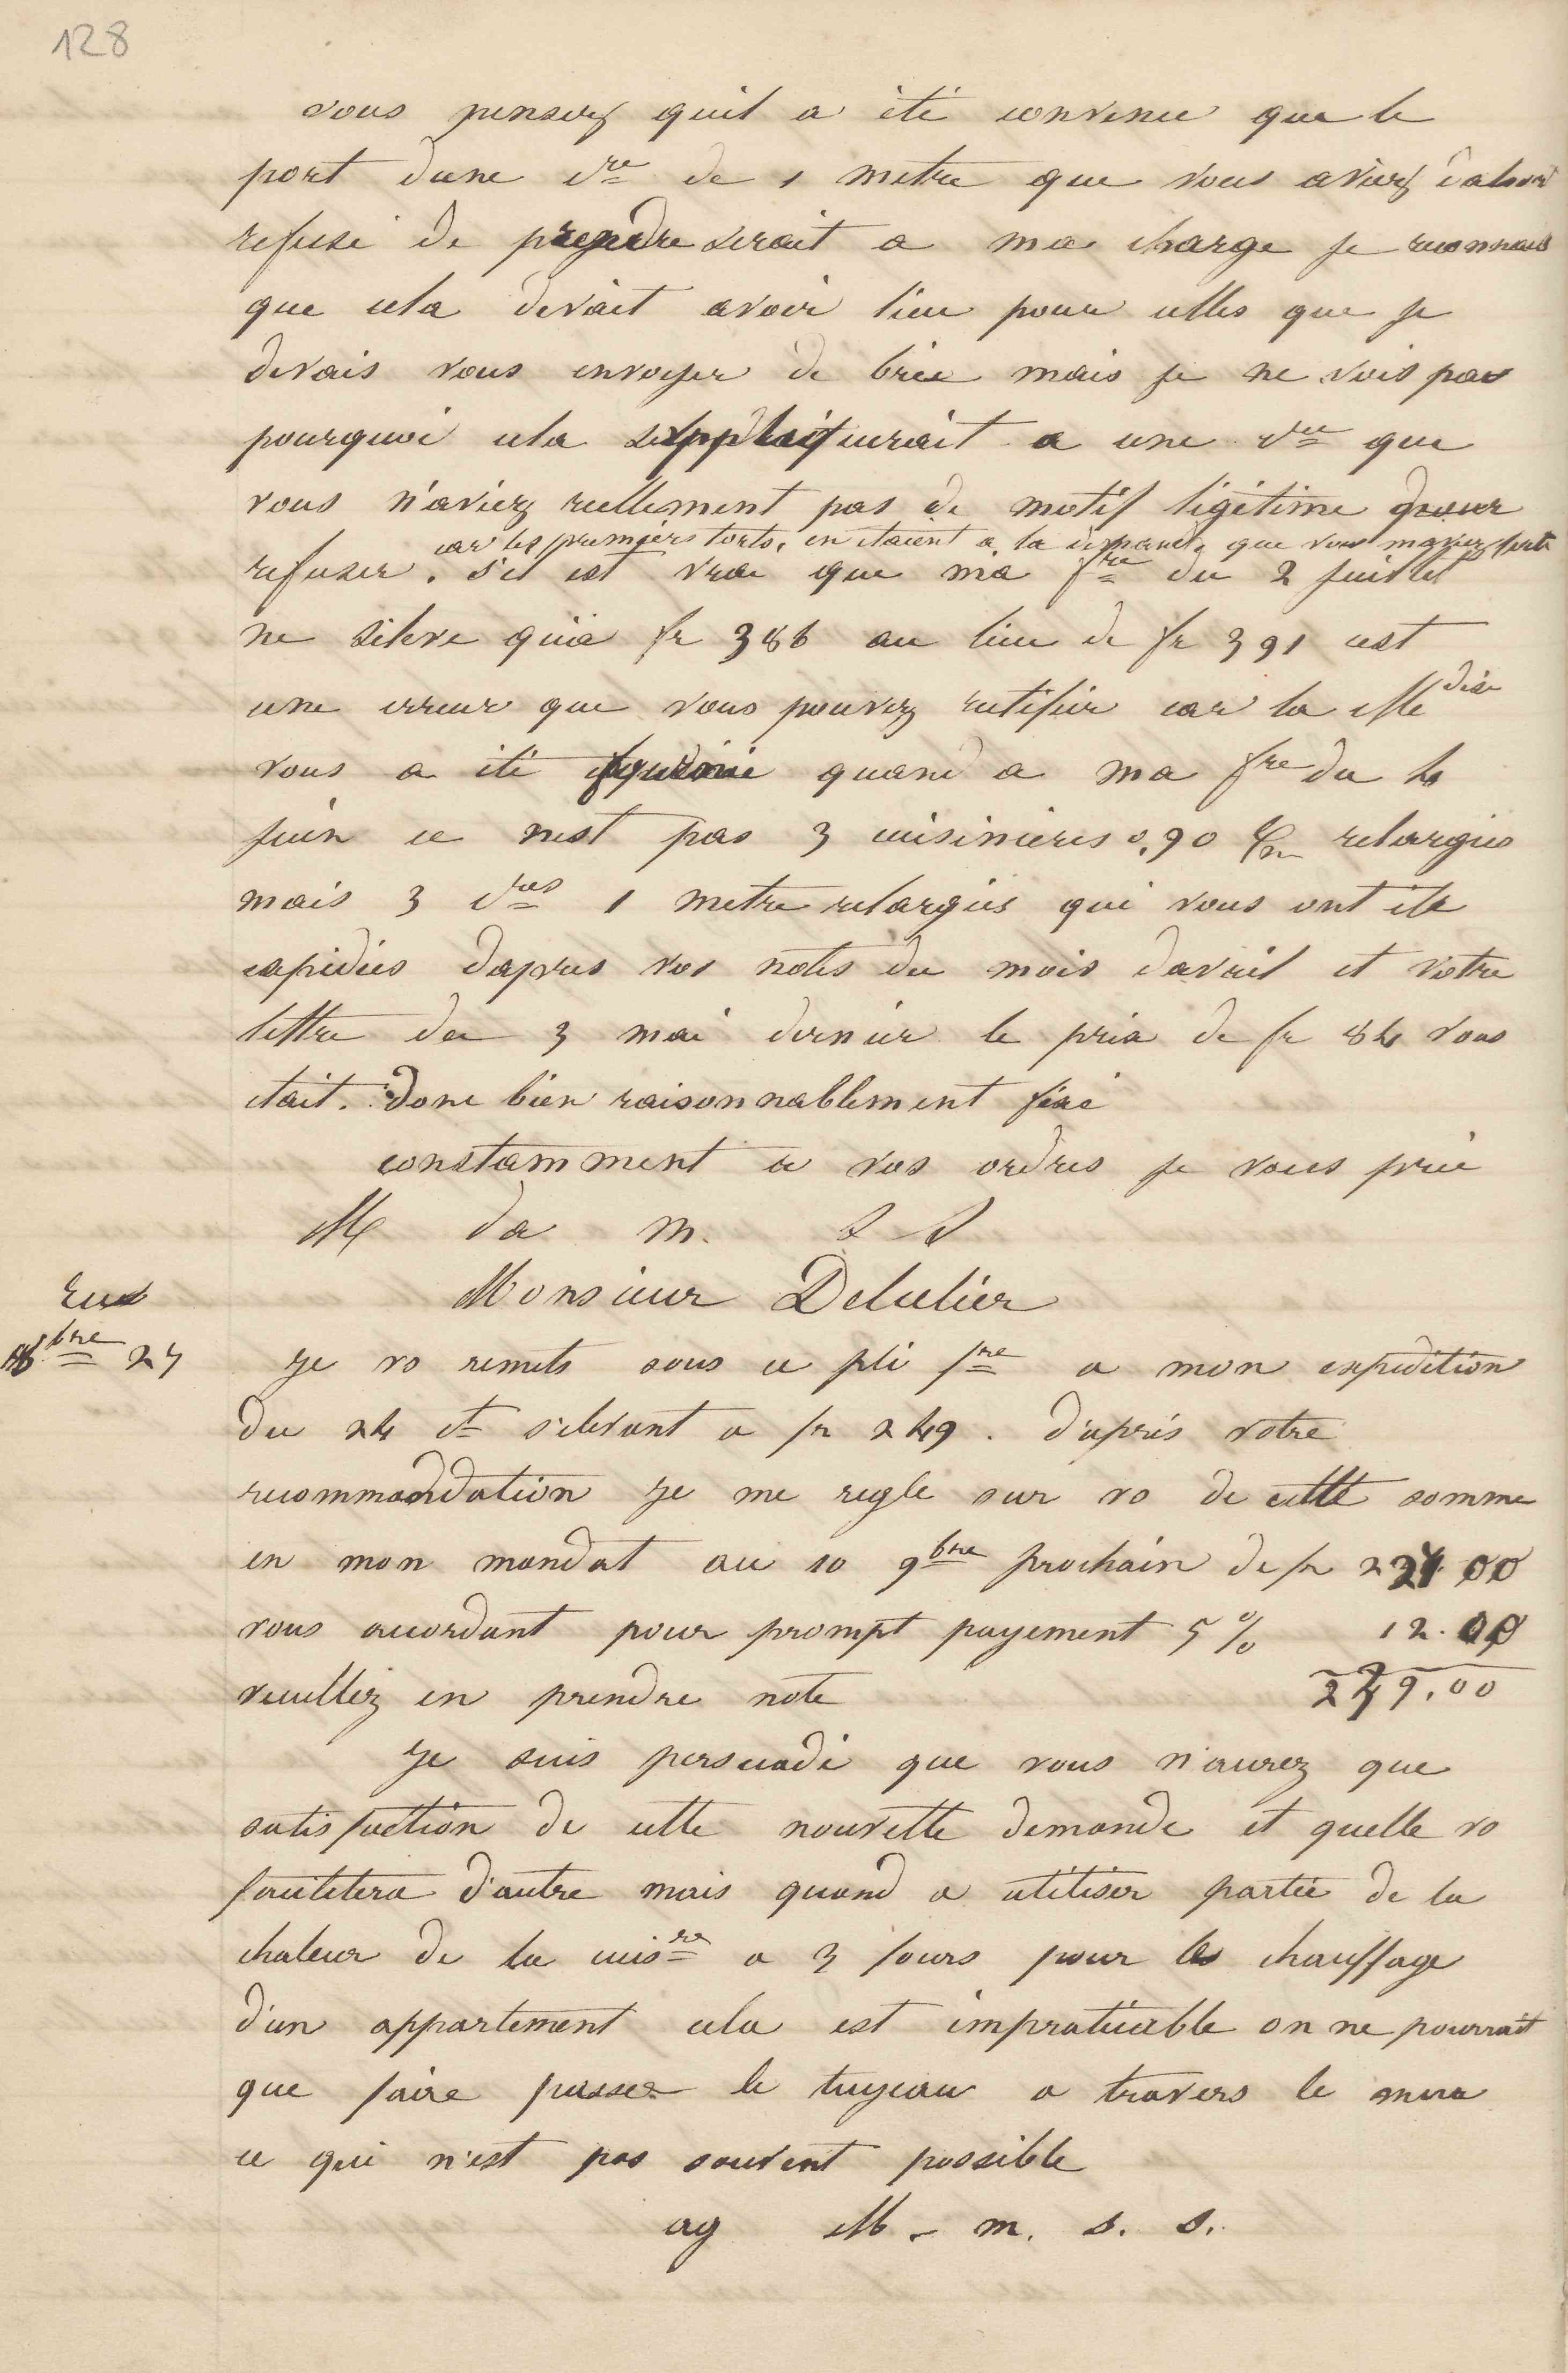 128
vous pensez quil a été convenu que le
port dune cre de 1 metre que vous aviez dabord
refusé de prendre serait a ma charge je reconnais
que cela devait avoir lieu pour celles que je
devais vous envoyer de brie mais je ne vois pas
pourquoi cela s'appliquerait a une cre que
vous n'aviez reellement pas de motif légitime pour
car les premiers torts en étaient a la demande que vous maviez faite
refuser. s'il est vrai que ma fre du 2 juillet
ne sileve qu'a fr 386 au lieu de fr 391 cest
une erreur que vous pouvez rectifier car la Mdise
vous a été fournie quand a ma fre du 4
juin ce nest pas 3 cuisinieres 0,90 c/m relargies
mais 3 cres 1 metre relargies qui vous ont été
expediées dapres vos notes du mois davril et votre
lettre du 3 mai dernier le prix de fr 84 vous
etait donc bien raisonnablement fixé
constamment a vos ordres je vous prie
M da m. S S
Monsieur Delulier
Rue
8bre 27
Je vo remets sous ce pli fre a mon expédition
du 24 ct s'elevant a fr 249. d'aprés votre
recommandation je me regle sur vo de cette somme
en mon mandat au 10 9bre prochain de fr 237 00
vous accordant pour prompt payement 5 % 12.00
veuillez en prendre note 249,00
Je suis persuadé que vous n'aurez que
satisfaction de cette nouvelle demande et quelle vo
facilitera d'autre mais quand a utiliser partie de la
chaleur de la cuisre a 3 fours pour les chauffage
d'un appartement cela est impraticable on ne pourrait
que faire passer le tuyeau a travers le mur
ce qui n'est pas souvent possible
ag M - m. s. s.